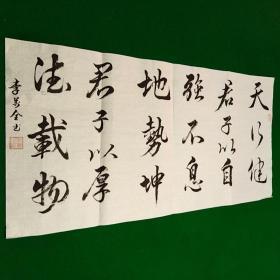 天行健
君子以自
強不息
地勢坤
君子以厚
德載物
李兴全书